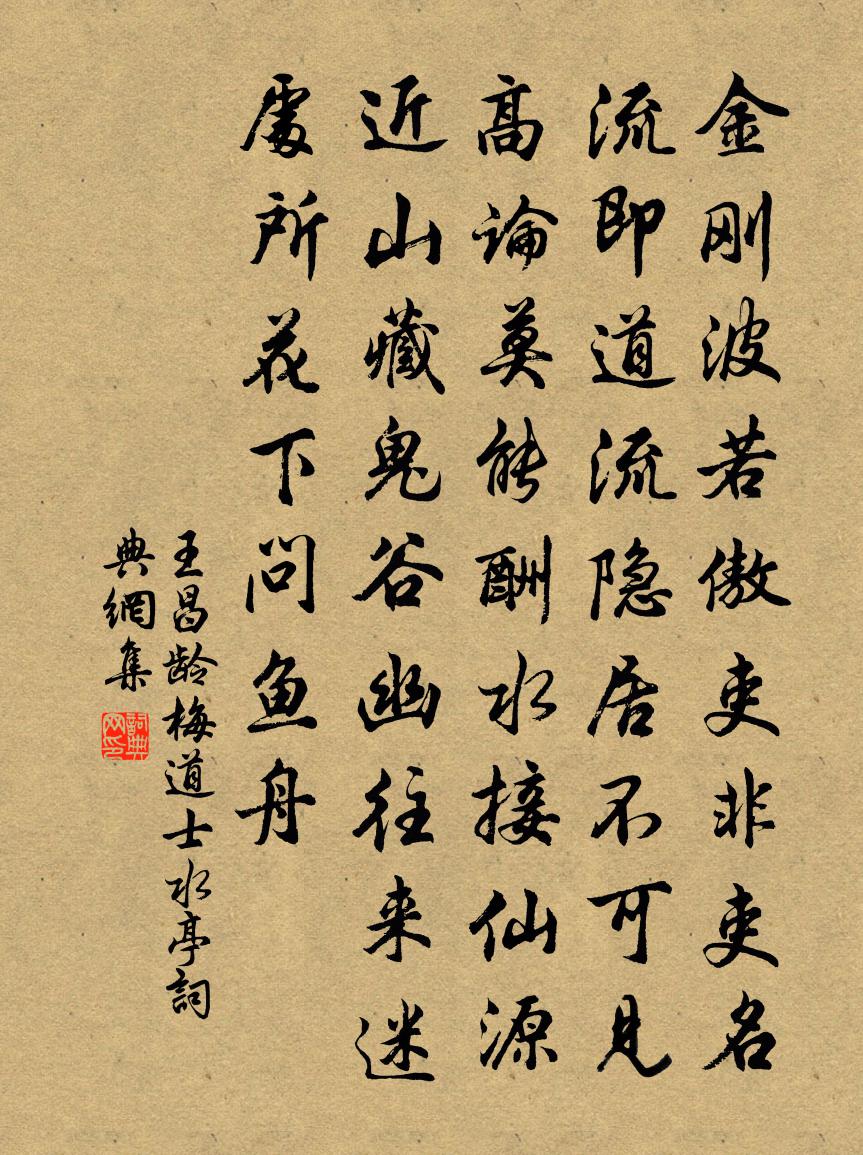 金刚波若傲吏非吏名
流即道流隐居不可见
高論莫能酬水接仙源
近山藏鬼谷幽往来迷
處所花下问鱼舟
王昌龄梅道士水亭詞
典網集
詞典
网印